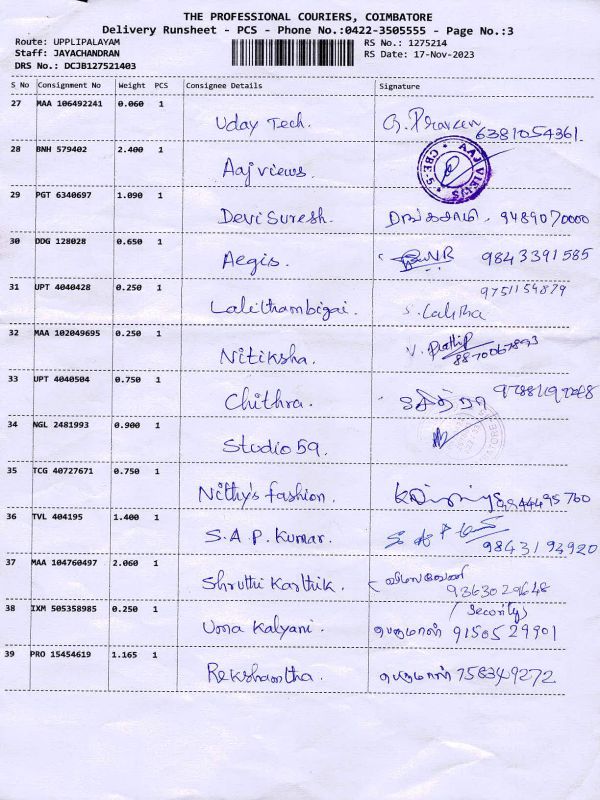 THE PROFESSIONAL COURIERS, COIMBATORE
Delivery Runsheet - PCS - Phone No.:0422-3505555 - Page No.:3
Route: UPPLIPALAYAM RS No.: 1275214
Staff: JAYACHANDRAN RS Date: 17-Nov-2023
DRS No.: DCJB127521403
S No Consignment No Weight PCS Consignee Details Signature
27 MAA 106492241 0.060 1 Uday Tech. G. Praveen 6381054361.
28 BNH 579402 2.400 1 Aaj views. AAJ VIEWS * CBE-5 *
29 PGT 6340697 1.090 1 Devi Suresh. 9489070000
30 DDG 128028 0.650 1 Aegis. 9843391585
31 UPT 4040428 0.250 1 Lalithambigai. 9751154879
S. Lalitha
32 MAA 102049695 0.250 1 Nitiksha. V.
33 UPT 4040504 0.750 1 Chithra. சித்ரா
34 NGL 2481993 0.900 1 Studio 59.
35 TCG 40727671 0.750 1 Nithy's fashion.
36 TVL 404195 1.400 1 S.A.P. Kumar. 9843193920
37 MAA 104760497 2.060 1 Shruthi Karthik. 9363029648
(Security)
38 IXM 505358985 0.250 1 Uma Kalyani. பெருமாள் 9150529901
39 PRO 15454619 1.165 1 Rekshantha. பெருமாள் 758349272